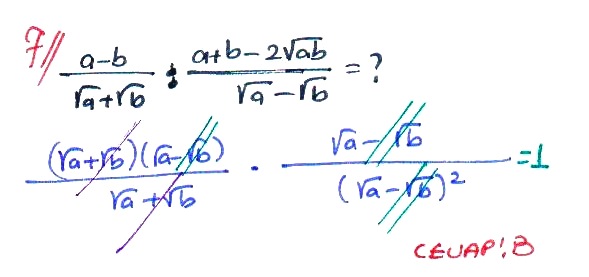 7// (a-b)/(√a+√b) : (a+b-2√ab)/(√a-√b) = ?
((√a+√b)(√a-√b))/(√a+√b) · (√a-√b)/((√a-√b)²) = 1
CEVAP: B